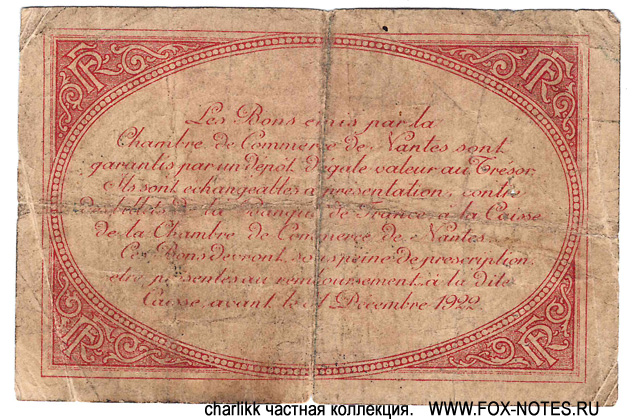 RF RF
Les Bons émis par la
Chambre de Commerce de Nantes sont
garantis par un dépôt d'égale valeur au Trésor.
Ils sont échangeables à présentation, contre
des billets de la Banque de France, à la Caisse
de la Chambre de Commerce de Nantes.
Ces Bons devront, sous peine de prescription,
être présentés au remboursement à la dite
Caisse, avant le Décembre 1922
RF RF
charlikk частная коллекция.
WWW.FOX-NOTES.RU